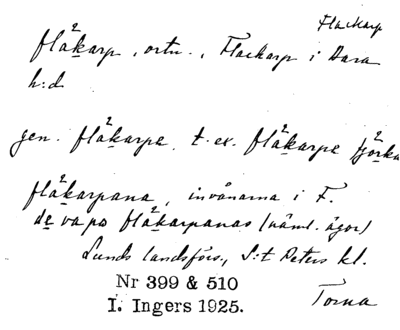 Flackarp
flǻkarp, ortn., Flackarp i Bara
h:d
gen. flǻkarpa t. ex. flǻkarpa
flǻkarpana, invånarna i F.
de va po flǻkarpanas (näml. ägor)
Lunds landsförs., S:t Peters kl.
Nr 399 & 510
I. Ingers 1925.
Torna